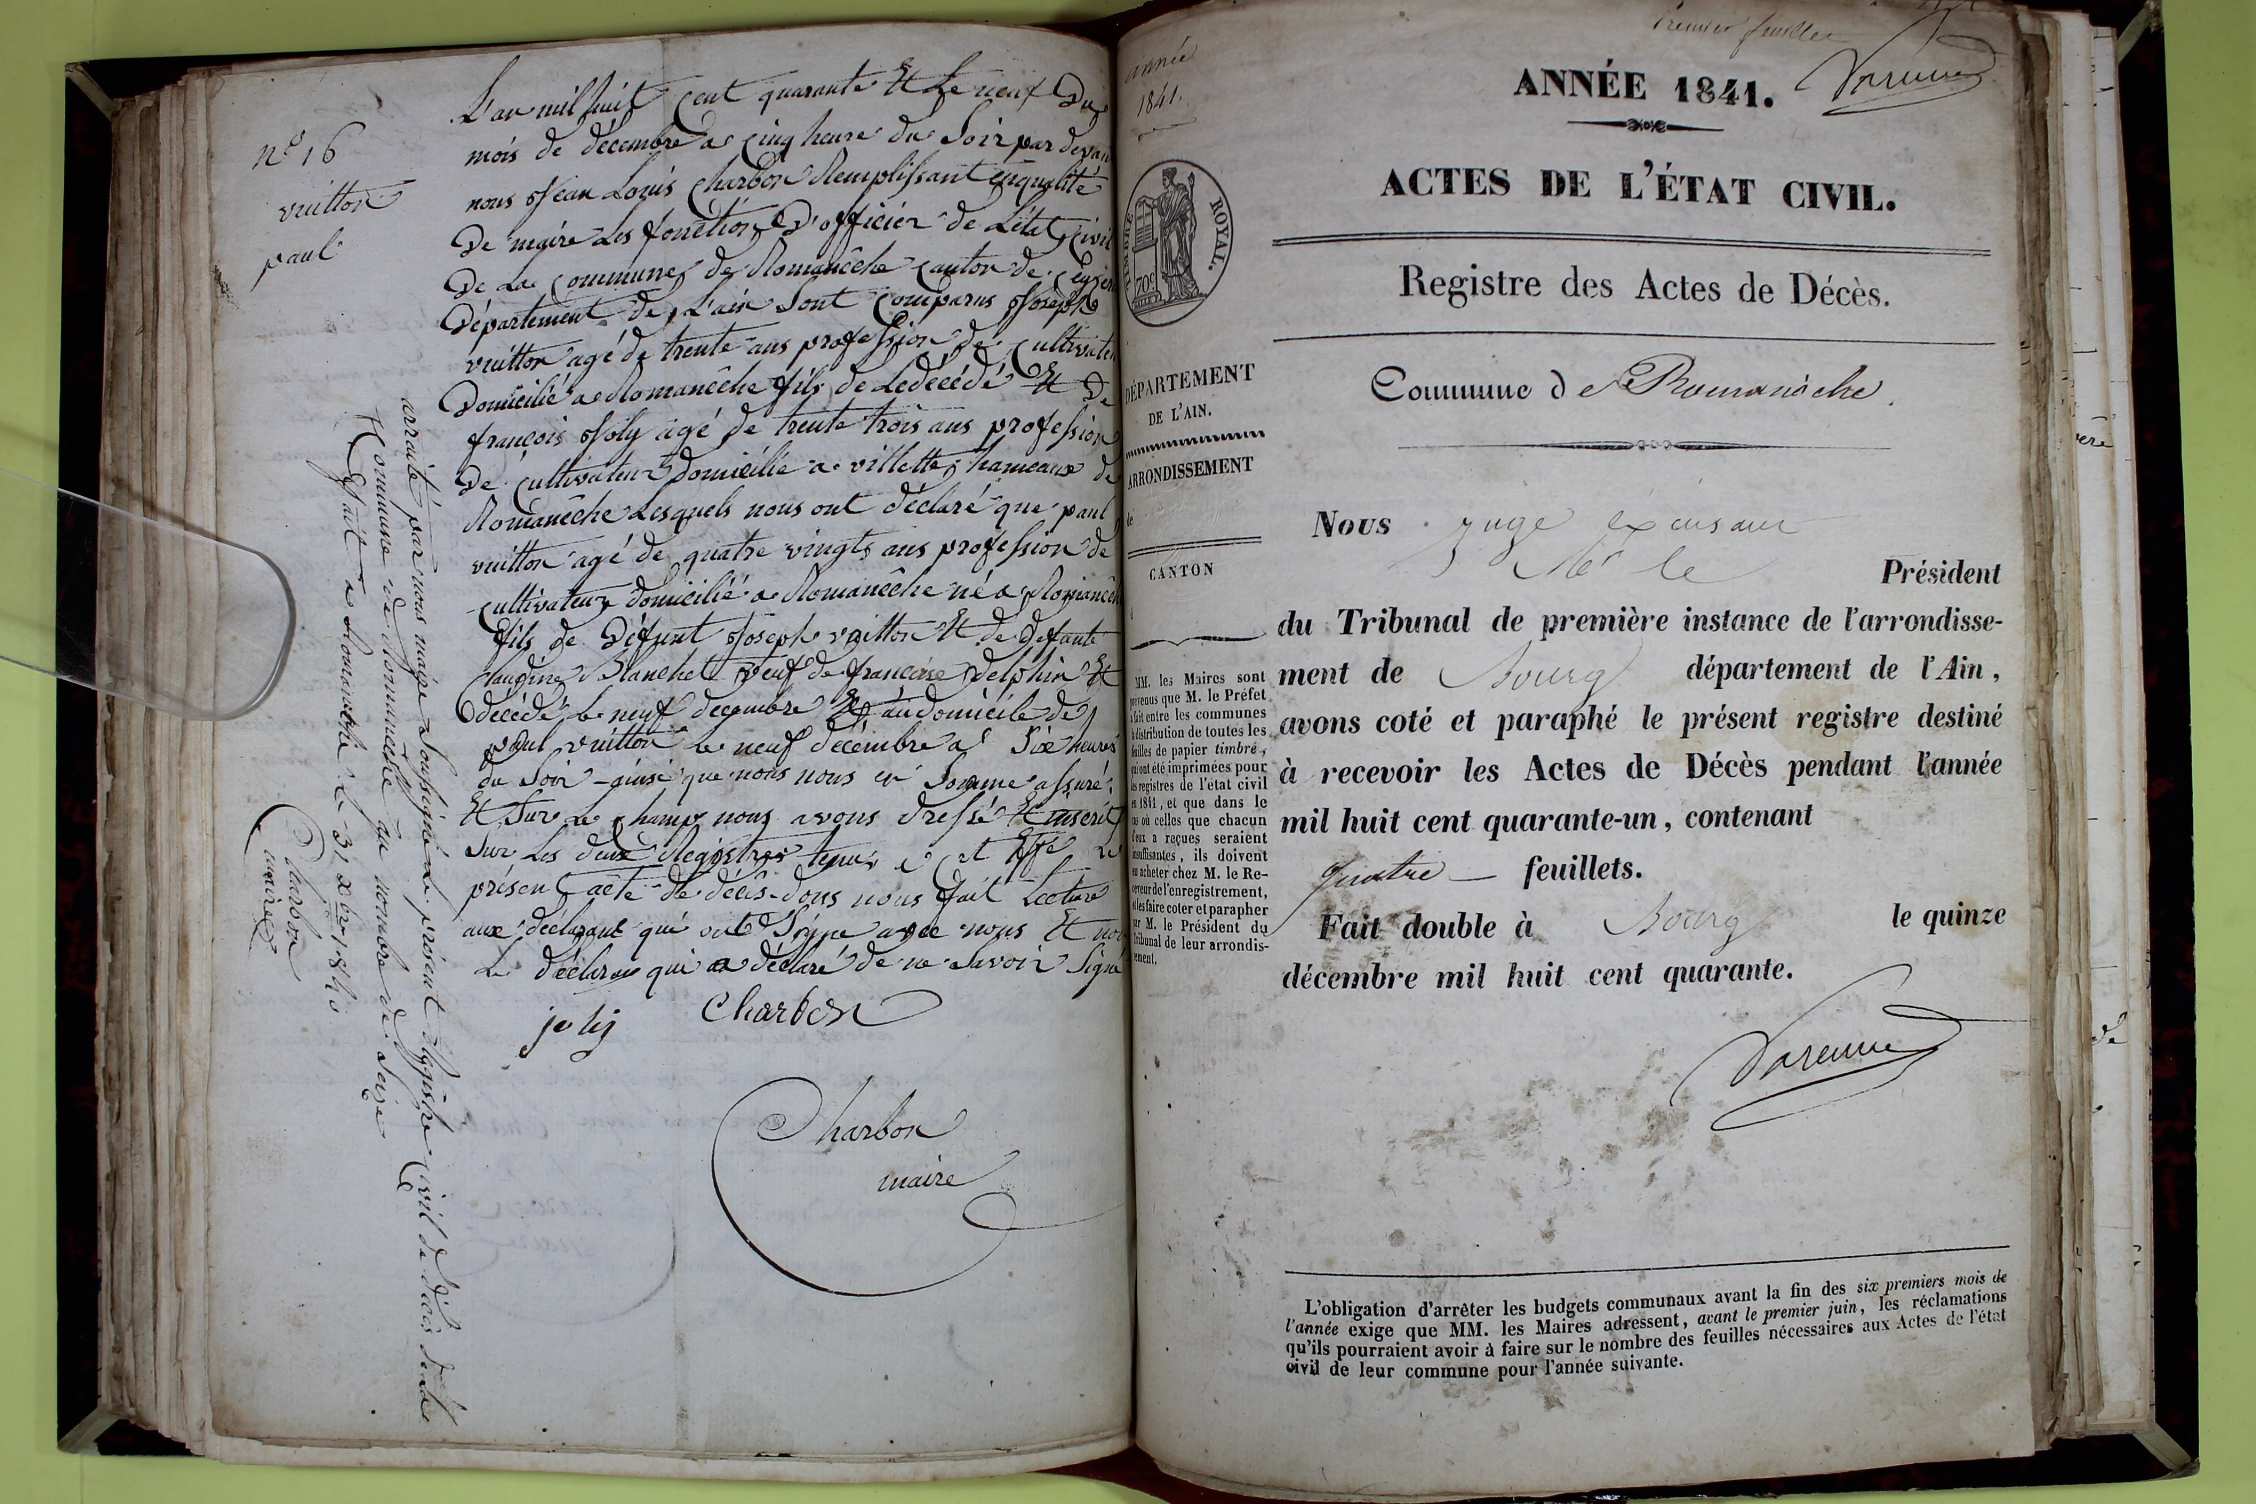 nº 16
vuitton
paul
L'an mil huit cent quarante Et Le neuf Du
mois de décembre a cinq heure du Soir par devan
nous Jean Louis Charbon Remplissant en qualité
De maire Les fonction D'officier de L'état civil
De La commune de Romanêche canton de
Département de L'ain Sont comparus Joseph
vuitton agé de trente ans profession de cultivate
Domicilié a Romanêche fils de Ledécédé Et De
françois Joly agé de trente trois ans profession
De cultivateur Domicilié a villette hameaux de
Romanêche Lesquels nous ont déclaré que paul
vuitton agé de quatre vingts ans profession de
cultivateur domicilié a Romanêche né a Romanêch
fils de Défunt Joseph vuitton Et de Defante
claudine Blanchet veuf de francoise Delphin Et
Décédé Le neuf decembre au domicile de
paul vuitton Le neuf décembre a Six heures
du Soir ainsi que nous nous en Somme assuré
Et Sur Le champ nous avons dressé Et inscrit
Sur Les deux Registres tenus a cet Effé Le
présent acte de décès dons nous fait Lecture
aux déclarant qui ont Signe avec nous Et non
Le déclaran qui a déclaré de ne Savoir Signé
joly Charbon
Charbon
maire
arraité par nous maire Soussigné Le présent Registre Civil de décès de la
Commune de Romanêche au nombre de Seize
Fait a Romanêche Le 31 xbre 1840
Charbon
maire
année
1841.
Premier feuillet
Varenne
ANNÉE 1841.
ACTES DE L'ÉTAT CIVIL.
TIMBRE ROYAL.
70c
Registre des Actes de Décès.
Commune de Romanêche
DÉPARTEMENT
DE L'AIN.
ARRONDISSEMENT
de
CANTON
MM. les Maires sont
prévenus que M. le Préfet
a fait entre les communes
la distribution de toutes les
feuilles de papier timbré,
qui ont été imprimées pour
les registres de l'état civil
en 1841, et que dans le
cas où celles que chacun
d'eux a reçues seraient
insuffisantes, ils doivent
en acheter chez M. le Re-
ceveur de l'enregistrement,
et les faire coter et parapher
par M. le Président du
Tribunal de leur arrondis-
sement.
Nous juge
Mr le Président
du Tribunal de première instance de l'arrondisse-
ment de Bourg département de l'Ain,
avons coté et paraphé le présent registre destiné
à recevoir les Actes de Décès pendant l'année
mil huit cent quarante-un, contenant
quatre feuillets.
Fait double à Bourg le quinze
décembre mil huit cent quarante.
Varenne
L'obligation d'arrêter les budgets communaux avant la fin des six premiers mois de
l'année exige que MM. les Maires adressent, avant le premier juin, les réclamations
qu'ils pourraient avoir à faire sur le nombre des feuilles nécessaires aux Actes de l'état
civil de leur commune pour l'année suivante.